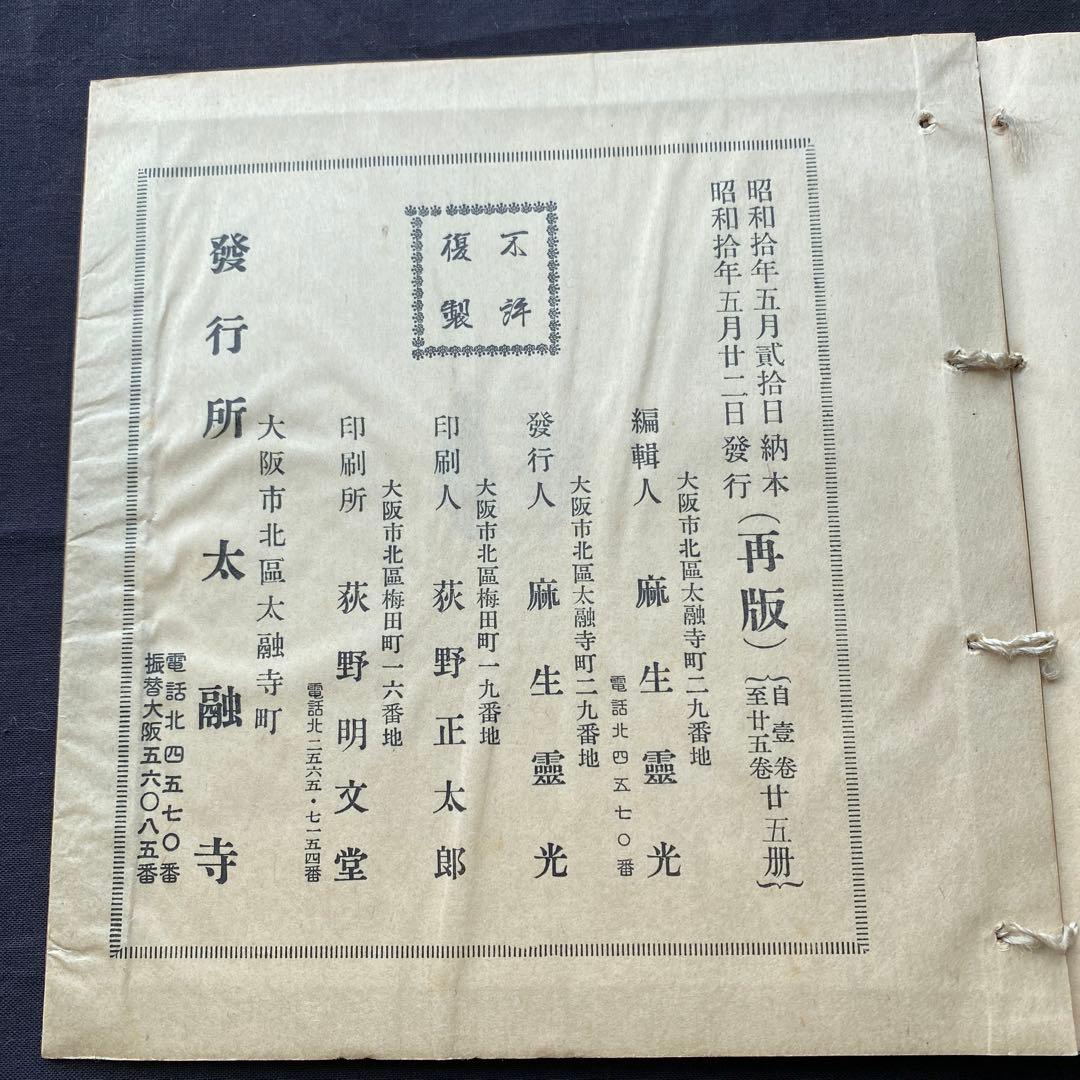 昭和拾年五月貳拾日納本
昭和拾年五月廿二日發行（再版）｛自壹卷至廿五卷廿五册｝
不許
復製
大阪市北區太融寺町二九番地
編輯人 麻生靈光
電話北四五七〇番
大阪市北區太融寺町二九番地
發行人 麻生靈光
大阪市北區梅田町一九番地
印刷人 荻野正太郎
大阪市北區梅田町一六番地
印刷所 荻野明文堂
電話北二五六五・七一五四番
大阪市北區太融寺町
發行所 太融寺
電話北四五七〇番
振替大阪五六〇八五番